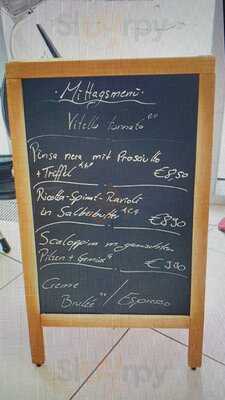 Mittagsmenü
Vitello tonnato
Pinsa nera mit Prosciutto
+ Trüffel € 8,50
Ricotta-Spinat-Ravioli
in Salbeibutter € 8,90
Scaloppina m. gemischten
Pilzen + Gemüse
Creme
Brulée / Espresso